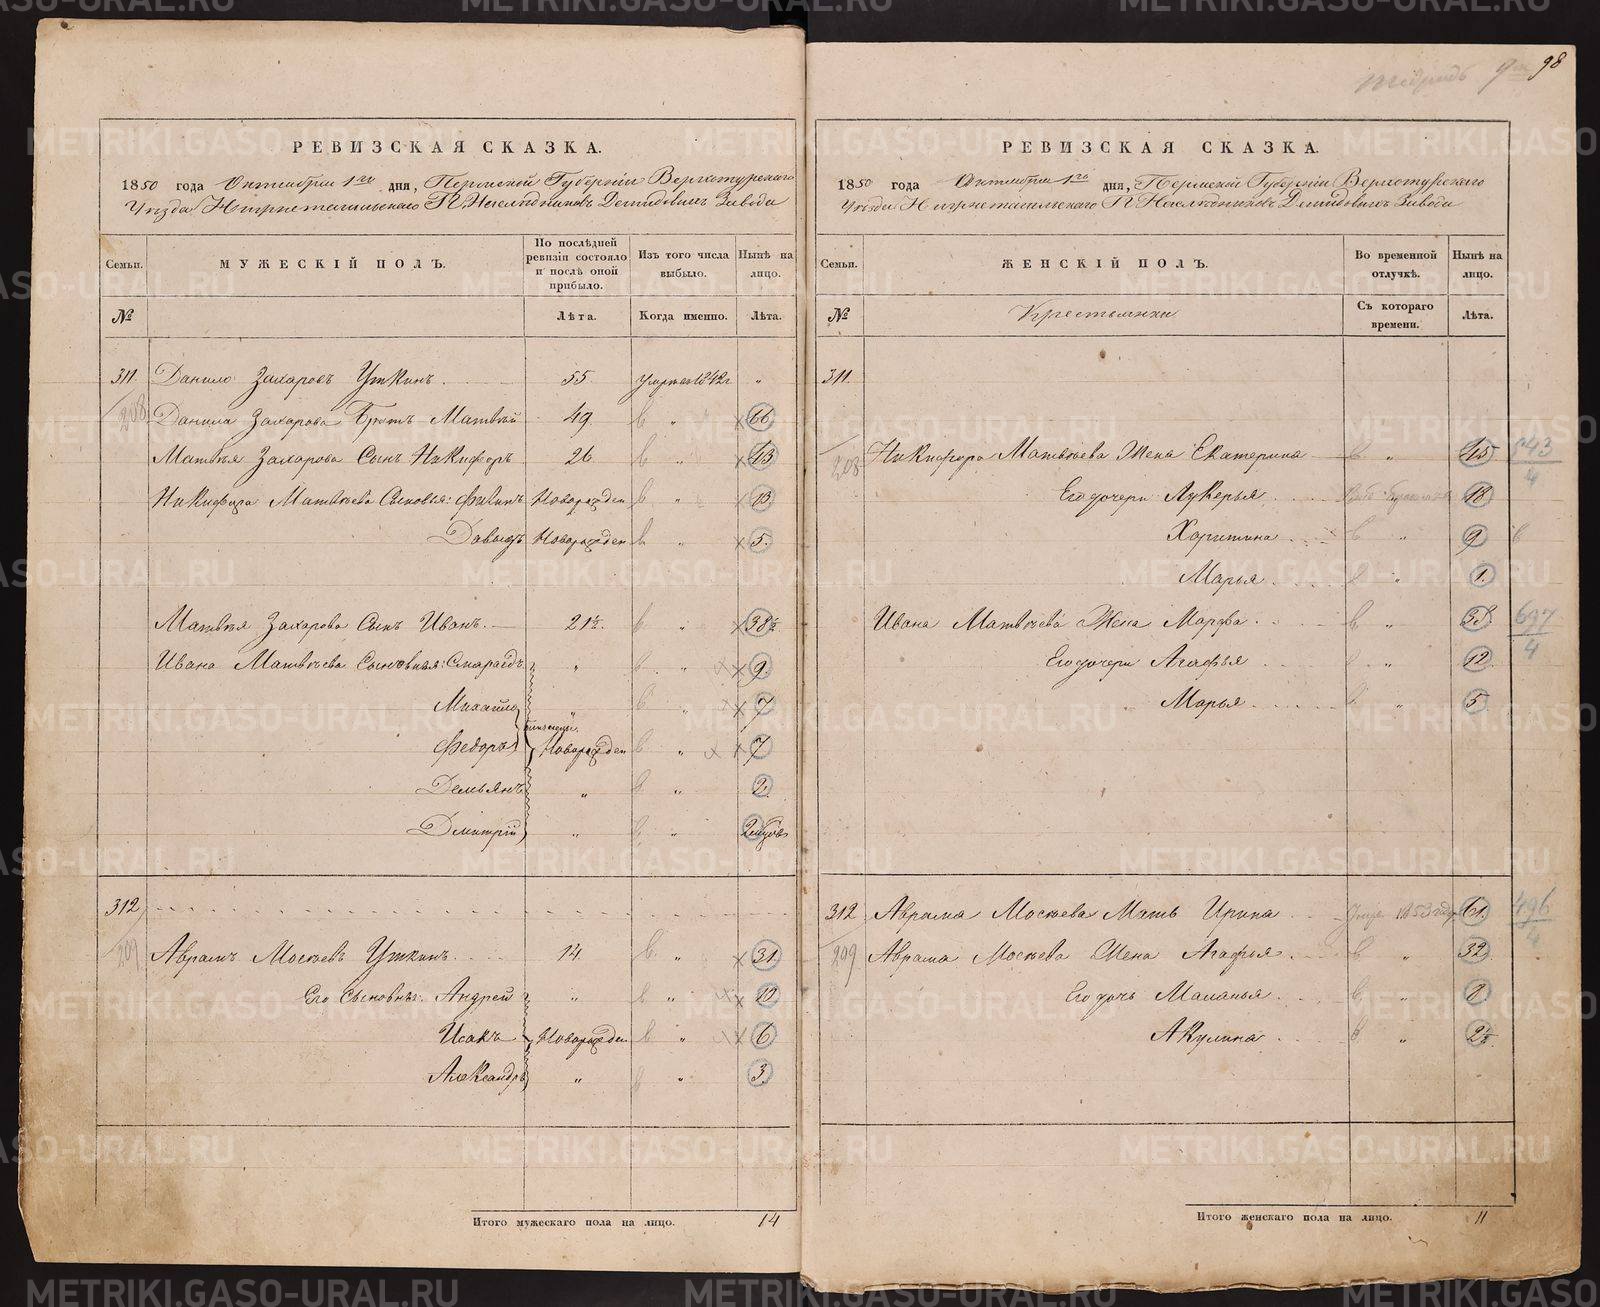 98
РЕВИЗСКАЯ СКАЗКА.
1850 года Октября 1го дня, Пермской Губернии Верхотурскаго
Уезда Нижнетагильскаго П. Наследниковъ Демидовыхъ Завода
Семьи.
МУЖЕСКІЙ ПОЛЪ.
По послѣдней ревизіи состояло и послѣ оной прибыло.
Изъ того числа выбыло.
Нынѣ на лицо.
№
Лѣта.
Когда именно.
Лѣта.
311 Данило Захаровъ Уткинъ 55 умре 1842 г. "
208 Данила Захарова Братъ Матвѣй 49 " 66
Матвѣя Захарова Сынъ Никифоръ 26 " 43
Никифора Матвѣева Сыновья: Новорожден " 13
Давыдъ Новорожден " 5.
Матвѣя Захарова Сынъ Иванъ. 21½. " 38½
Ивана Матвѣева Сыновья: " " 9.
Михайло " " 7
близнецы
Федоръ Новорожден " 7
Демьянъ " " 2.
Дмитрій " "
312
209 Аврамъ Мосѣевъ Уткинъ 14 " 31.
Его Сыновья: Андрей " " 10
Исакъ Новорожден " 6
Александръ " " 3.
Итого мужескаго пола на лицо. 14
РЕВИЗСКАЯ СКАЗКА.
1850 года Октября 1го дня, Пермской Губерніи Верхотурскаго
Уезда Нижнетагильскаго П. Наследниковъ Демидовыхъ Завода
Семьи.
ЖЕНСКІЙ ПОЛЪ.
Во временной отлучкѣ.
Нынѣ на лицо.
№
Крестьянки
Съ котораго времени.
Лѣта.
311.
208 Никифора Матвѣева Жена Екатерина " 45 943/4
Его дочери Лукерья 18
Харитина " 9
Марья " 1.
Ивана Матвѣева Жена Марфа " 38 697/4
Его дочери Агафья " 12.
Марья " 5
312 Аврама Мосѣева Мать Ирина 1853 61. 496/4
209 Аврама Мосѣева Жена Агафья " 32
Его дочь Маланья " 8
Акулина " 2½
Итого женскаго пола на лицо. 11
METRIKI.GASO-URAL.RU